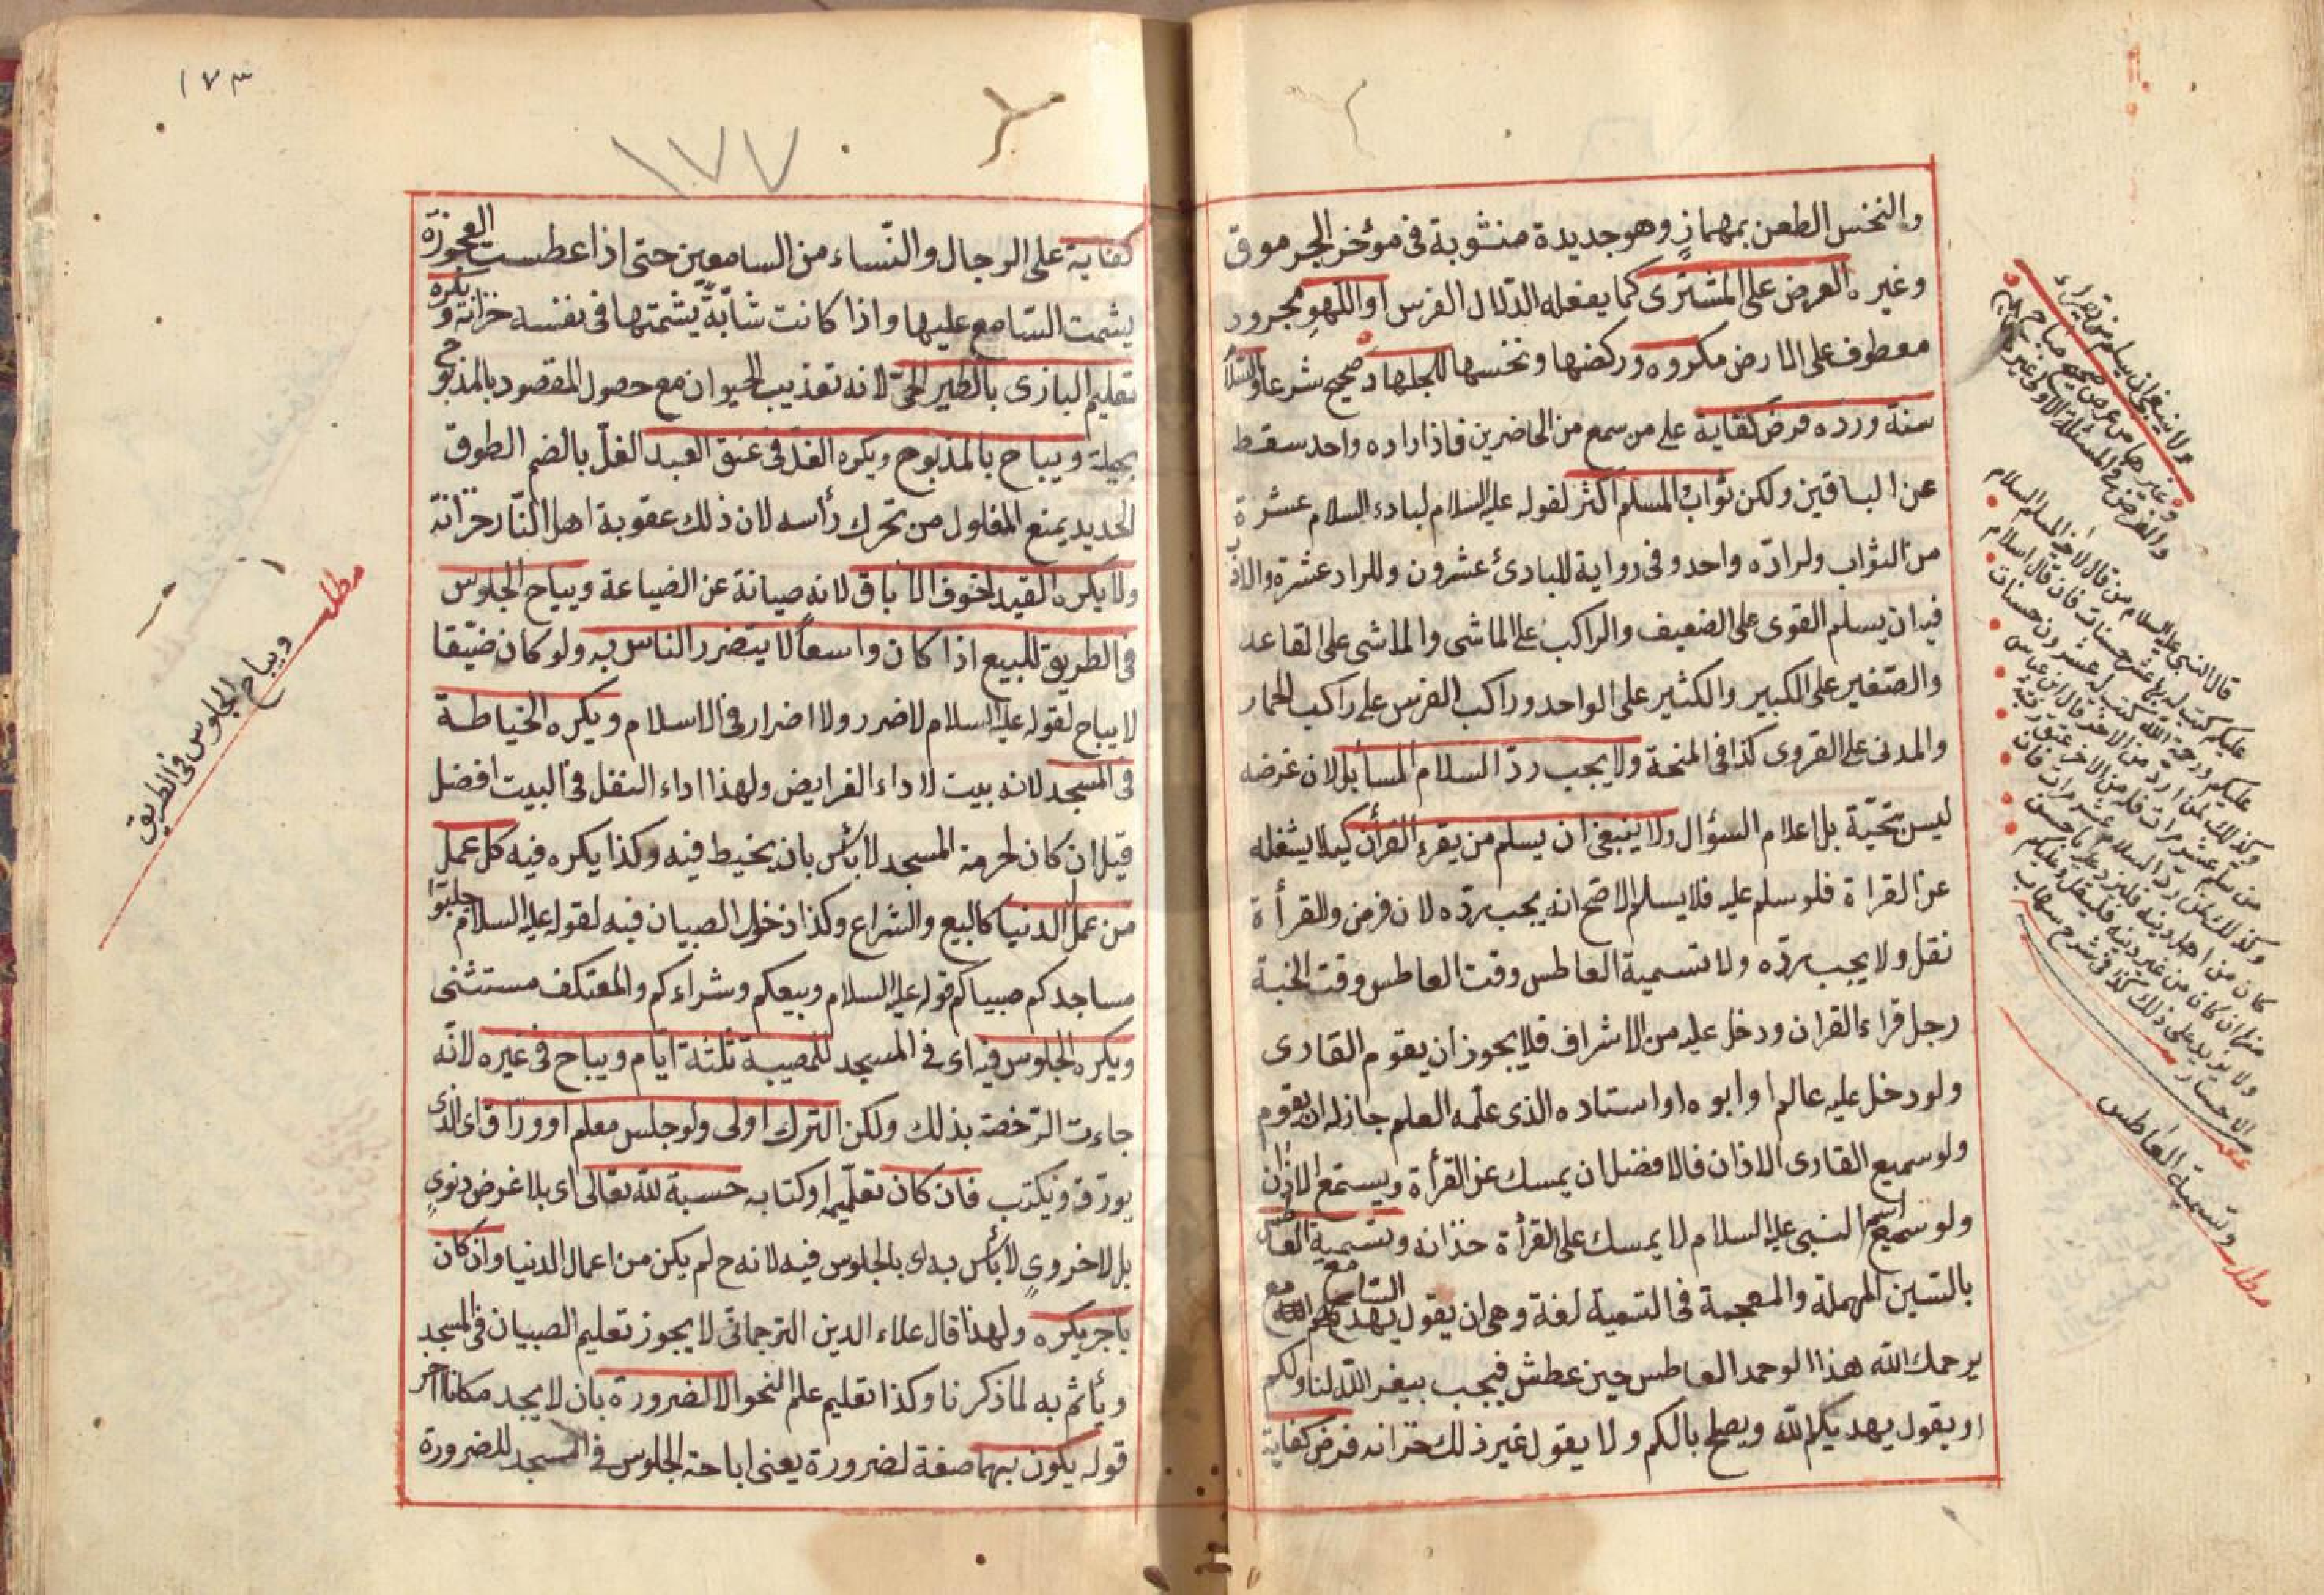 والنخس الطعن بمهماز وهو جديدة منشوبة في مؤخر الجرموق
وغيره العرض على المشترى كما يفعله الدلال الفرس او اللهو مجرور
معطوف على المارض مكروه وركضها ونخسها للجهاد صحيح شرعا والسلام
سنة ورده فرض كفاية على من سمع من الحاضرين فاذا اراده واحد سقط
عن الباقين ولكن ثواب المسلم اكثر لقوله عليه السلام لبادء السلام عشرة
من الثواب ولرادّه واحد وفى رواية للبادئ عشرون وللراد عشرة والادب
فيه ان يسلم القوى على الضعيف والراكب على الماشى والماشى على القاعد
والصّغير على الكبير والكثير على الواحد وراكب الفرس على راكب الحمار
والمدنى على القروى كذا فى المنحة ولا يجب ردّ السلام المسأئل لان غرضه
ليس بتحيّة بل اعلام السؤال ولا ينبغى ان يسلم من يقرء القرأن كيلا يشغله
عن القراة فلو سلم عليه فلا يسلم الاصح انه يجب ردّه لان فرض وللقرأة
نقل ولا يجب ردّه ولا تسمية العاطس وقت العاطس وقت الخبة
رجل قراء القران ودخل عليه من الاشراف فلا يجوز ان يقوم القارى
ولو دخل عليه عالم او ابوه او استاده الذى علمه العلم جاز له ان يقوم
ولو سميع القارى الاذان فالافضل ان يمسك عن القرأة ويستمع الاذان
ولو سميع اسم النبى عليه السلام لا يمسك على القرأة خذانه وتسمية العاطس
بالسّين المهملة والمعجمة فى التسمية لغة وهى ان يقول السّامع
يرحمك الله هذا لو حمد العاطس حين عطش فيجب بيغفر الله لنا ولكم
او يقول يهديكم الله ويصلح بالكم ولا يقول غير ذلك خزانه فرض كفاية
ولا ينبغى ان يسلم من يقراء
قال النبى عليه السلام من قال لاخيه المسلم السلام
عليكم كتب له بها عشر حسنات فان قال السلام
عليكم ورحمة الله كتب له عشرون حسنات
مطلب وتسمية العاطس
١٧٣
١٧٧
كفاية على الرجال والنّساء من السامعين حتى اذا عطست العجوزة
يشمت السّامع عليها واذا كانت شابّةً يشمتها فى نفسه خزانة ويكره
تعليم البازى بالطير الحىّ لانه تعذيب الحيوان مع حصول المقصود بالمذبوح
بحيلة ويباح بالمذبوح ويكره الغلّ فى عنق العبد الغلّ بالضم الطوق
الحديد يمنع المغلول من تحرك رأسه لان ذلك عقوبة اهل النّار خزانة
ولا يكره القيد لخوف الاباق لانه صيانة عن الضياعة ويباح الجلوس
فى الطريق للبيع اذا كان واسعاً لا يتضرر الناس به ولو كان ضيّقا
لا يباح لقوله عليه السلام لاضرر ولا اضرار فى الاسلام ويكره الخياطة
فى المسجد لانه بيت لاداء الفرايض ولهذا اداء النفل فى البيت افضل
قيل ان كان لحرمة المسجد لا بأس بان يخيط فيه وكذا يكره فيه كل عمل
من عمل الدنيا كالبيع والشراع وكذا دخول الصبيان فيه لقوله عليه السلام جلبوا
مساجدكم صبيانكم قوله عليه السلام وبيعكم وشراءكم والمعتكف مستثنى
ويكره الجلوس فيه اى فى المسجد للمصيبة ثلثة ايام ويباح فى غيره لانّه
جاءت الرّخصة بذلك ولكن الترك اولى ولو جلس معلم او ورّاق اى الذى
يورق ويكتب فان كان تعلّيمه او كتابه حسبة لله تعالى اى بلا غرض دنوىٍ
بل لاخروىٍ لا بأس به اى بالجلوس فيه لانه ح لم يكن من اعمال الدنيا وان كان
باجر يكره ولهذا قال علاء الدين الترجمانى لا يجوز تعليم الصبيان فى المسجد
ويأثم به لما ذكرنا وكذا تعليم علم النحو الا لضرورة بان لا يجد مكانا اخر
قوله يكون بهما صفة لضرورة يعنى اباحة الجلوس فى المسجد للضرورة
مطلب ويباح الجلوس فى الطريق